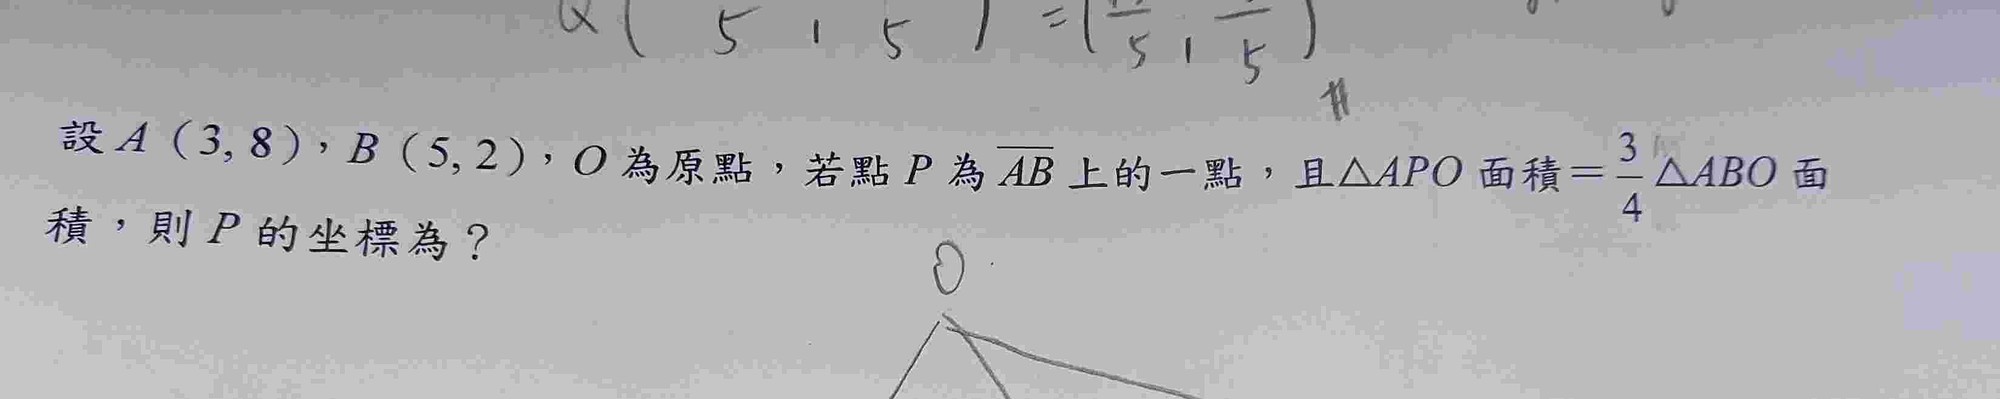 Q ( 5 , 5 ) = ( 5 , 5 ) #
設 A (3, 8), B (5, 2), O 為原點，若點 P 為 \overline{AB} 上的一點，且△APO 面積＝\frac{3}{4}△ABO 面
積，則 P 的坐標為？
O